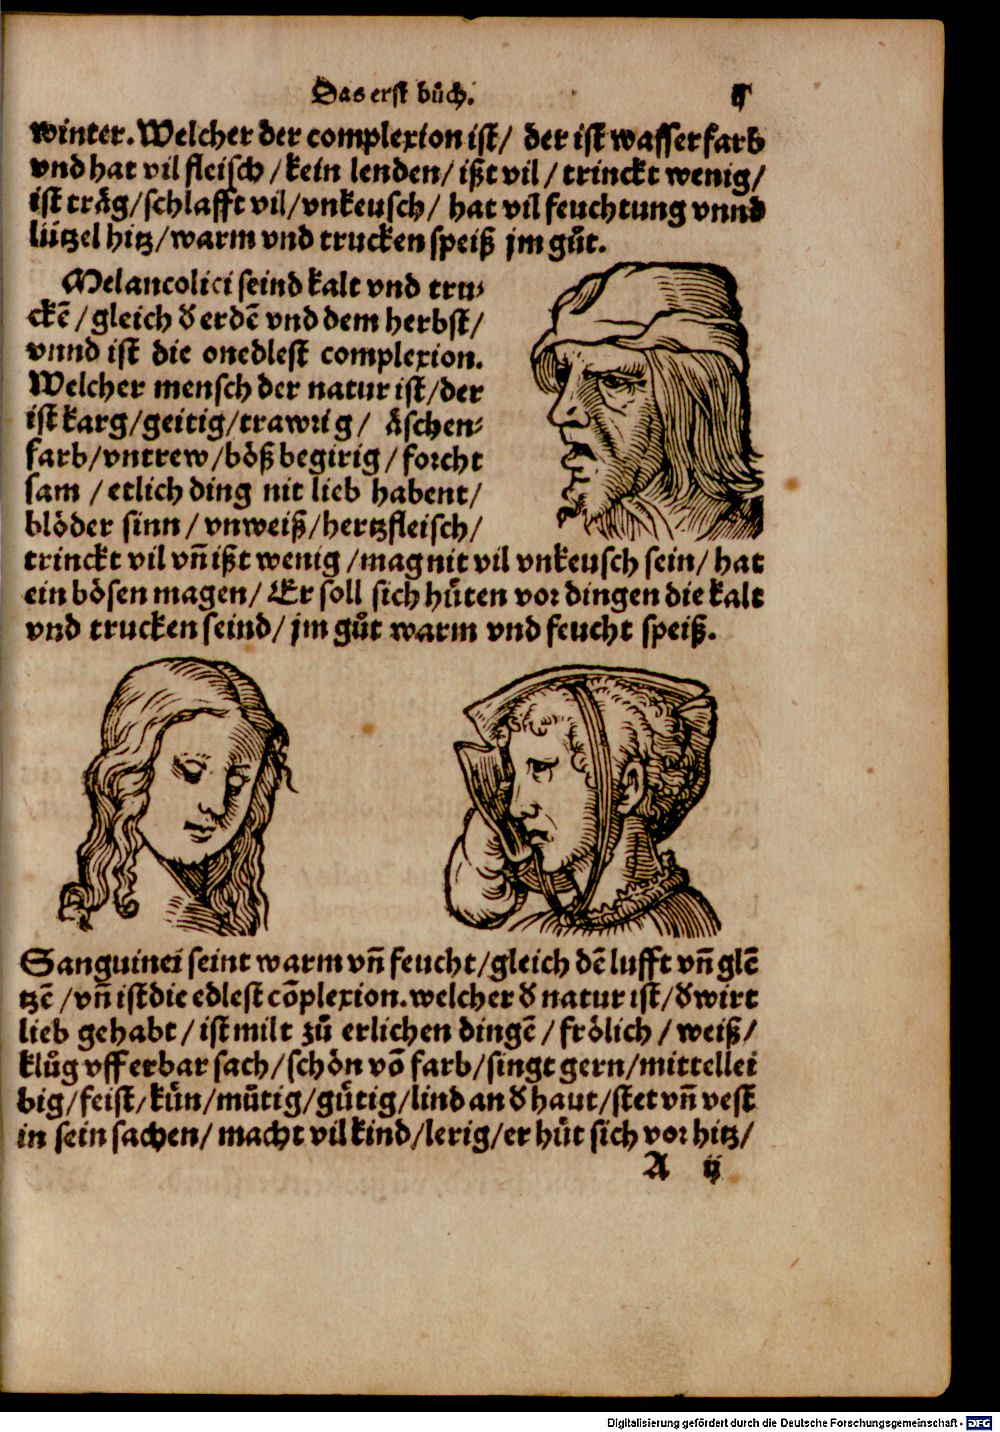 Das erst bůch.
winter. Welcher der complexion ist/ der ist wasserfarb
vnd hat vil fleisch/kein lenden/ ißt vil/ trinckt wenig/
ist tråg/schlafft vil/vnkeusch/ hat vil feuchtung vnnd
lützel hitz/warm vnd trucken speiß jm gůt.
Melancolici seind kalt vnd tru⸗
ckē/gleich d̕ erdē vnd dem herbst/
vnnd ist die onedlest complexion.
Welcher mensch der natur ist/der
ist karg/geitig/trawrig/ åschen⸗
farb/vntrew/böß begirig/forcht
sam/etlich ding nit lieb habent/
blöder sinn/vnweiß/hertzfleisch/
trinckt vil vñ ißt wenig/mag nit vil vnkeusch sein/ hat
ein bösen magen/ Er soll sich hůten vor dingen die kalt
vnd trucken seind/jm gůt warm vnd feucht speiß.
Sanguinei seint warm vñ feucht/gleich dē lufft vñ glē
tzē/vñ ist die edlest cōplexion. welcher d̕ natur ist/d̕ wirt
lieb gehabt/ist milt zů erlichen dingē/frölich/weiß/
klůg vff erbar sach/schön vō farb/singt gern/mittellei
big/feist/kün/mütig/gütig/lind an d̕ haut/stet vñ vest
in sein sachen/macht vil kind/lerig/er hüt sich vor hitz/
A ij
Digitalisierung gefördert durch die Deutsche Forschungsgemeinschaft - DFG